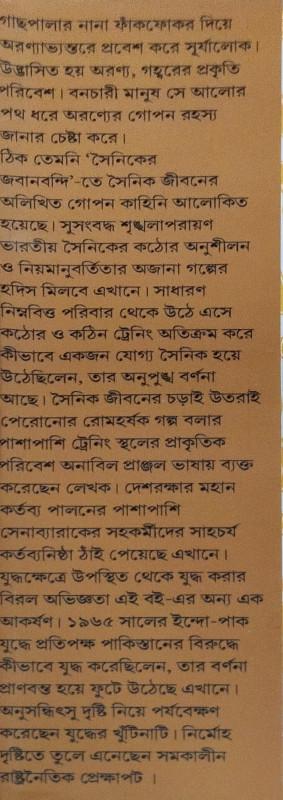 গাছপালার নানা ফাঁকফোকর দিয়ে
অরণ্যাভ্যন্তরে প্রবেশ করে সূর্যালোক।
উদ্ভাসিত হয় অরণ্য, গহ্বরের প্রকৃতি
পরিবেশ। বনচারী মানুষ সে আলোর
পথ ধরে অরণ্যের গোপন রহস্য
জানার চেষ্টা করে।
ঠিক তেমনি ‘সৈনিকের
জবানবন্দি’-তে সৈনিক জীবনের
অলিখিত গোপন কাহিনি আলোকিত
হয়েছে। সুসংবদ্ধ শৃঙ্খলাপরায়ণ
ভারতীয় সৈনিকের কঠোর অনুশীলন
ও নিয়মানুবর্তিতার অজানা গল্পের
হদিস মিলবে এখানে। সাধারণ
নিম্নবিত্ত পরিবার থেকে উঠে এসে
কঠোর ও কঠিন ট্রেনিং অতিক্রম করে
কীভাবে একজন যোগ্য সৈনিক হয়ে
উঠেছিলেন, তার অনুপুঙ্খ বর্ণনা
আছে। সৈনিক জীবনের চড়াই উতরাই
পেরোনোর রোমহর্ষক গল্প বলার
পাশাপাশি ট্রেনিং স্থলের প্রাকৃতিক
পরিবেশ অনাবিল প্রাঞ্জল ভাষায় ব্যক্ত
করেছেন লেখক। দেশরক্ষার মহান
কর্তব্য পালনের পাশাপাশি
সেনাব্যারাকের সহকর্মীদের সাহচর্য
কর্তব্যনিষ্ঠা ঠাঁই পেয়েছে এখানে।
যুদ্ধক্ষেত্রে উপস্থিত থেকে যুদ্ধ করার
বিরল অভিজ্ঞতা এই বই-এর অন্য এক
আকর্ষণ। ১৯৬৫ সালের ইন্দো-পাক
যুদ্ধে প্রতিপক্ষ পাকিস্তানের বিরুদ্ধে
কীভাবে যুদ্ধ করেছিলেন, তার বর্ণনা
প্রাণবন্ত হয়ে ফুটে উঠেছে এখানে।
অনুসন্ধিৎসু দৃষ্টি নিয়ে পর্যবেক্ষণ
করেছেন যুদ্ধের খুঁটিনাটি। নির্মোহ
দৃষ্টিতে তুলে এনেছেন সমকালীন
রাষ্ট্রনৈতিক প্রেক্ষাপট ।